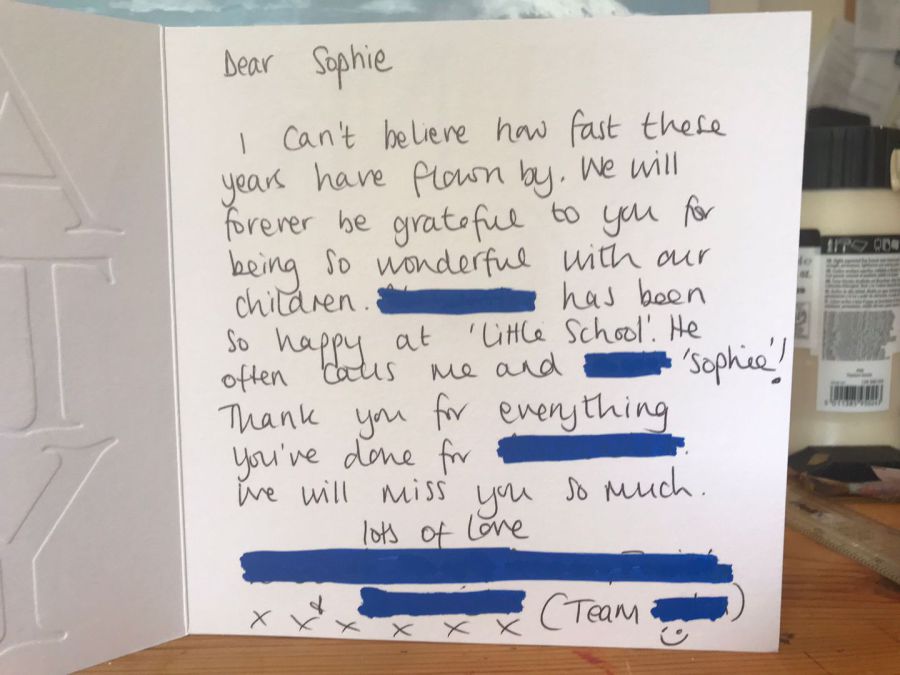 Dear Sophie
I can't believe how fast these
years have flown by. We will
forever be grateful to you for
being so wonderful with our
children. has been
so happy at 'Little School'. He
often calls me and 'Sophie'!
Thank you for everything
you've done for .
We will miss you so much.
lots of love
&
x x x x x x (Team )
A
U
Y